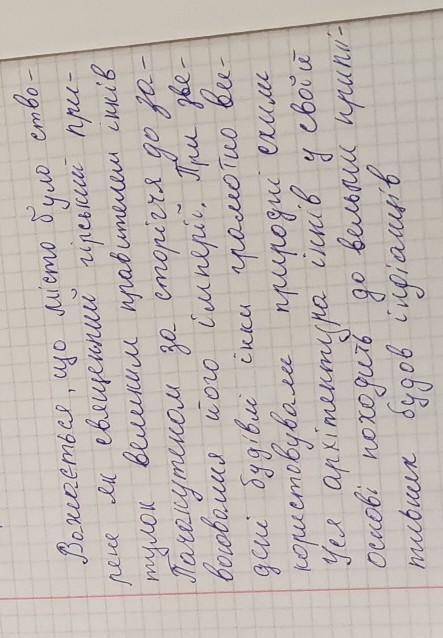 Вважається, що місто було ство-
рене як священний гірський при-
тулок великим правителем інків
Пачакутеком за сторіччя до за-
воювання його імперії. При зве-
дені будівлі інки грамотно вин-
користовували природні схили
Уся архітектура інків у своїй
основі походить до вельми приміт-
тивних будов індіанців